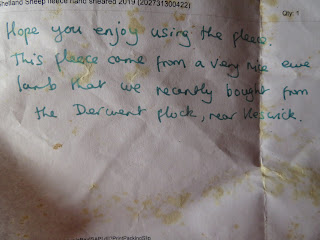 Shetland Sheep fleece hand sheared 2019 (202731300422)
Qty: 1
Hope you enjoy using the fleece.
This fleece came from a very nice ewe
lamb that we recently bought from
the Derwent flock, near Keswick.